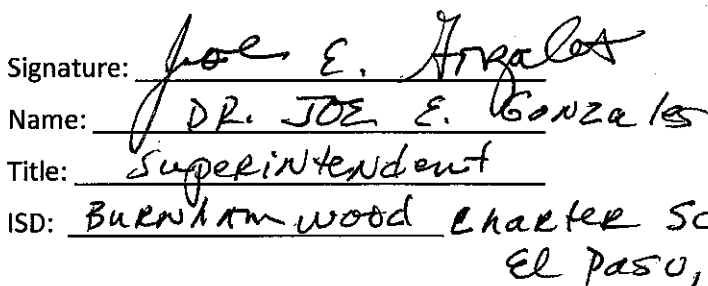 Signature: Joe E. Gonzales
Name: DR. JOE E. Gonzales
Title: Superintendent
ISD: Burnham wood Charter Sc
El Paso,